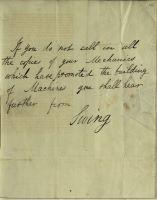 If you do not sell
the copies of your Mechanics
which have promoted the building
of Machines you shall hear
further from
Swing